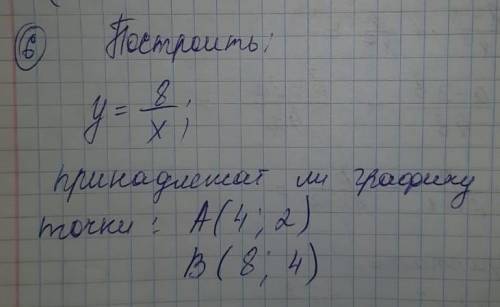 6 Построить:
y = 8/x;
принадлежат ли графику
точки: A(4; 2)
B(8; 4)